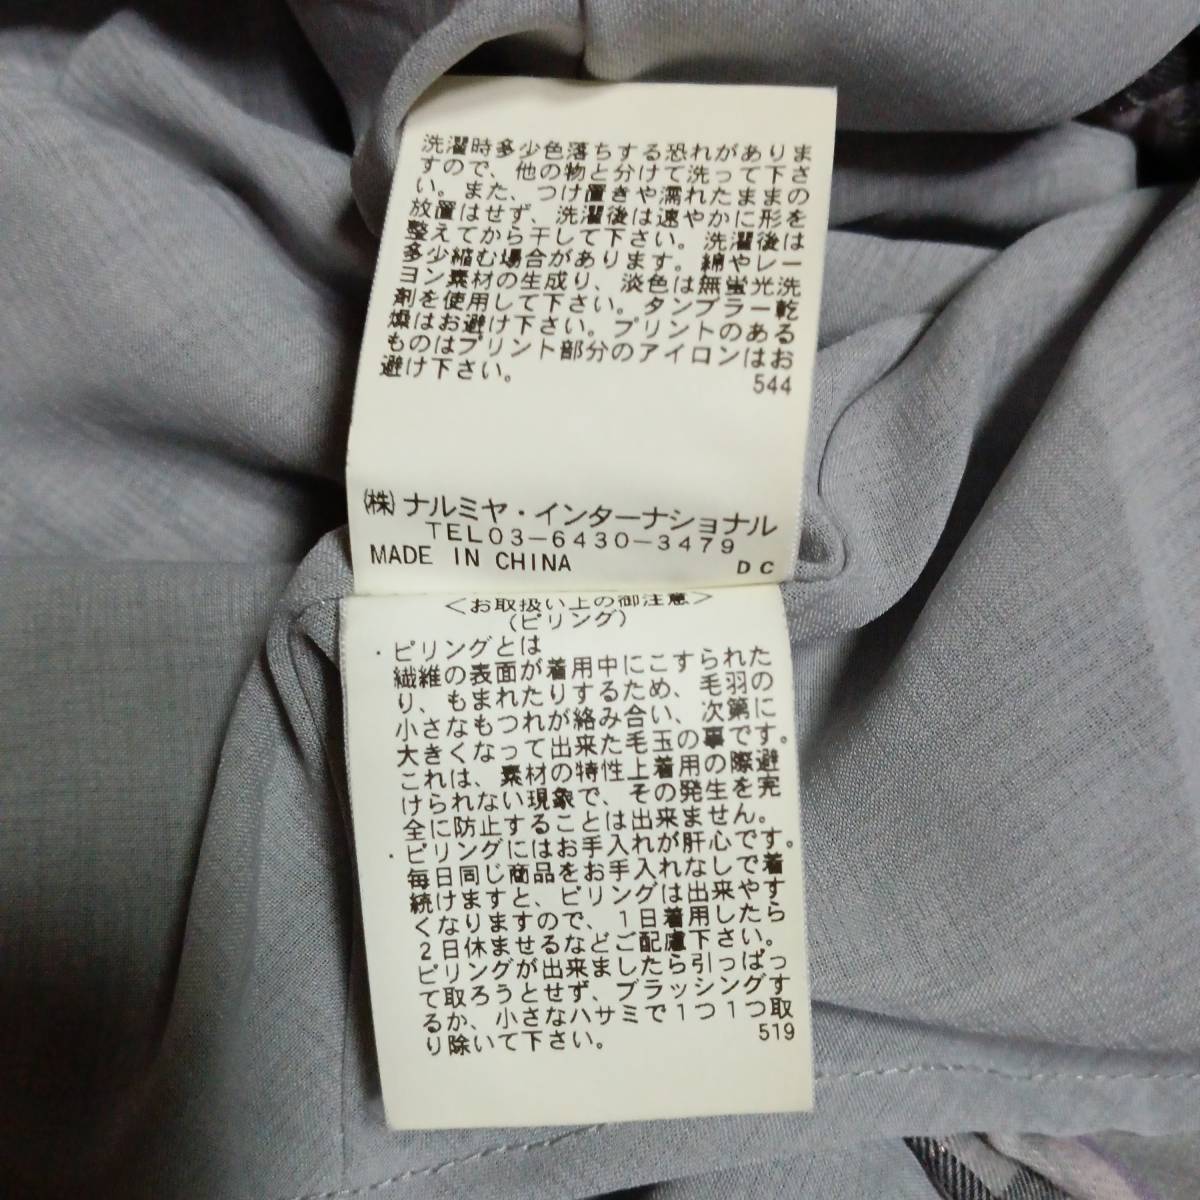 洗濯時多少色落ちする恐れがありま
すので、他の物と分けて洗って下さ
い。また、つけ置きや濡れたままの
放置はせず、洗濯後は速やかに形を
整えてから干して下さい。洗濯後は
多少縮む場合があります。綿やレー
ヨン素材の生成り、淡色は無蛍光洗
剤を使用して下さい。タンブラー乾
燥はお避け下さい。プリントのある
ものはプリント部分のアイロンはお
避け下さい。
544
㈱ナルミヤ・インターナショナル
TEL03-6430-3479
MADE IN CHINA DC
<お取扱い上の御注意>
(ピリング)
・ピリングとは
繊維の表面が着用中にこすられた
り、もまれたりするため、毛羽の
小さなもつれが絡み合い、次第に
大きくなって出来た毛玉の事です。
これは、素材の特性上着用の際避
けられない現象で、その発生を完
全に防止することは出来ません。
・ピリングにはお手入れが肝心です。
毎日同じ商品をお手入れなしで着
続けますと、ピリングは出来やす
くなりますので、1日着用したら
2日休ませるなどご配慮下さい。
ピリングが出来ましたら引っぱっ
て取ろうとせず、ブラッシングす
るか、小さなハサミで1つ1つ取
り除いて下さい。
519